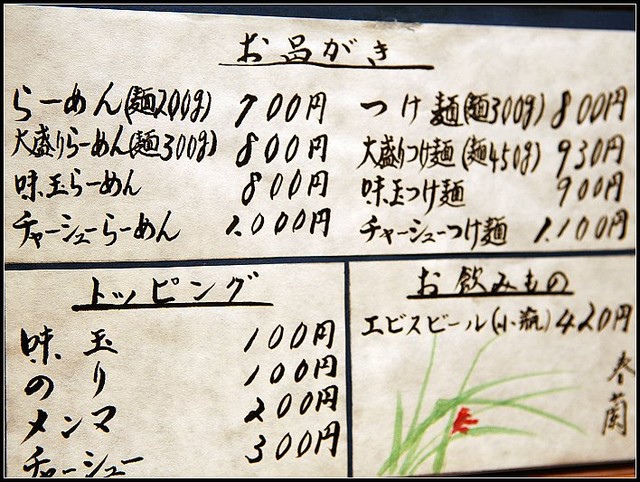 お品がき
らーめん(麺200g) 700円
大盛りらーめん(麺300g) 800円
味玉らーめん 800円
チャーシューらーめん 1.000円
つけ麺(麺300g) 800円
大盛りつけ麺(麺450g) 930円
味玉つけ麺 900円
チャーシューつけ麺 1.100円
トッピング
味玉 100円
のり 100円
メンマ 200円
チャーシュー 300円
お飲みもの
エビスビール(小瓶) 420円
春蘭